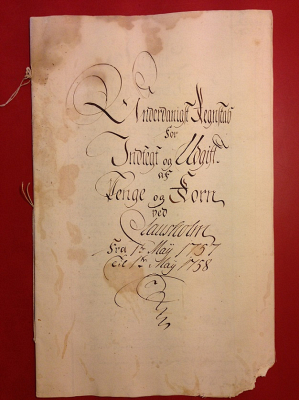 Underdanigst Regnskab
for
Indtegt og Udgift
af
Penge og Korn
ved
Clausholm
Fra 1st Maÿ 1757
Til 1st Maÿ 1758